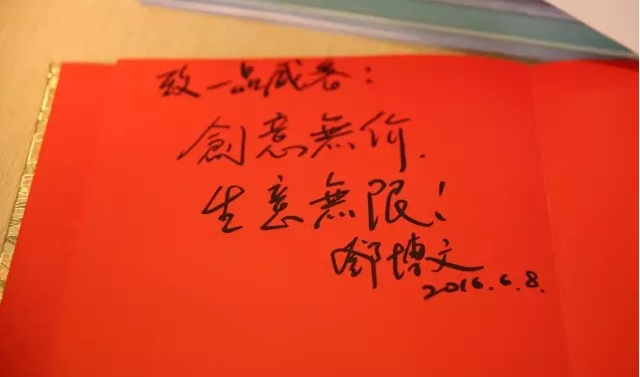 致一品威客:
創意無价.
生意無限!
鄧博文
2016.6.8.